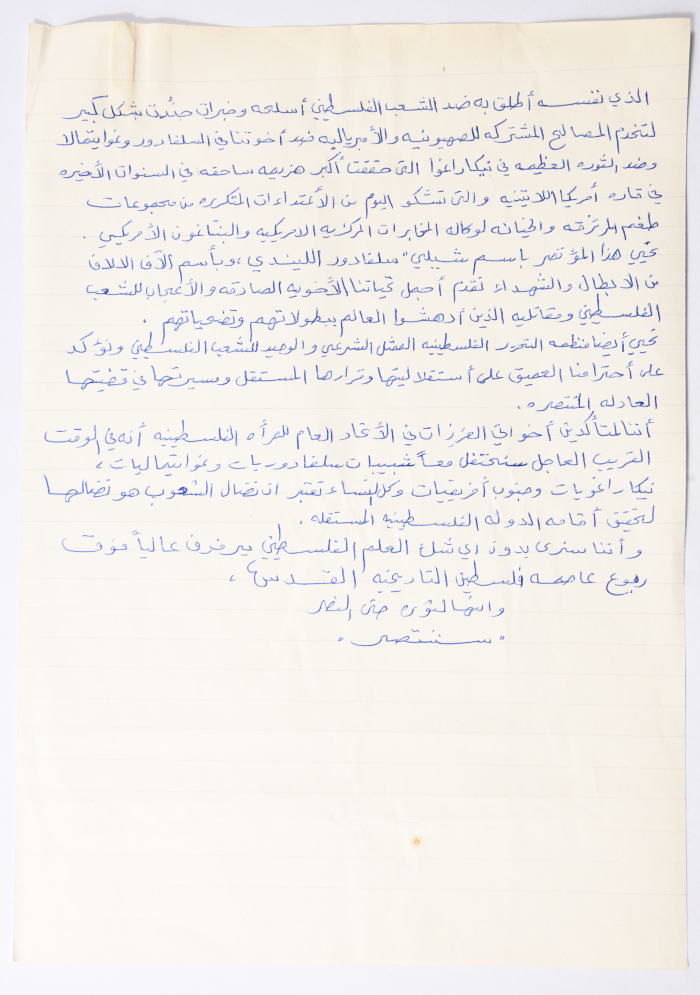 الذي نفسه أطلق به ضد الشعب الفلسطيني أسلحه وخبرات جنّدت بشكل كبير
لتخدم المصالح المشتركه للصهيونيه والأمبرياليه ضد أخوتنا في السلفادور وغواتيمالا
وضد الثوره العظيمه في نيكاراغوا التي حققت أكبر هزيمه ساحقه في السنوات الأخيره
في قاره أمريكا اللاتينيه والتي تشكو اليوم من الأعتداءات المتكرره من مجموعات
طغم المرتزقه والخيانه لوكاله المخابرات المركزيه الامريكيه والبنتاغون الأمريكي .
نحيّي هذا المؤتمر باسم شيبلي " سلفادور الليندي ، وبأسم آلاف الالاف
من الابطال والشهداء نقدم أجمل تحياتنا الأخويه الصادقه والأعجاب للشعب
الفلسطيني ومقاتليه الذين أدهشوا العالم ببطولاتهم وتضحياتهم .
نحيي أيضا منظمه التحرير الفلسطينيه الممثل الشرعي والوحيد للشعب الفلسطيني ونؤكد
على أحترامنا العميق على أستقلاليتها وقرارها المستقل ومسيرتها في قضيتها
العادله المنتصره .
أننا لمتأكدين أخواتي العزيزات في الأتحاد العام للمرأه الفلسطينيه أنه في الوقت
القريب العاجل سنحتفل معاً شبيبات سلفادوريات وغواتيماليات ،
نيكاراغويات وجنوب أفريقيات وكل النساء تعتبر ان نضال الشعوب هو نضالها
لتحقيق أقامه الدوله الفلسطينيه المستقله .
و أننا سنرى بدون اي شك العلم الفلسطيني يرفرف عالياً فوق
ربوع عاصمه فلسطين التاريخيه " القدس " ،
وانها لثوره حتى النصر
" سننتصر "